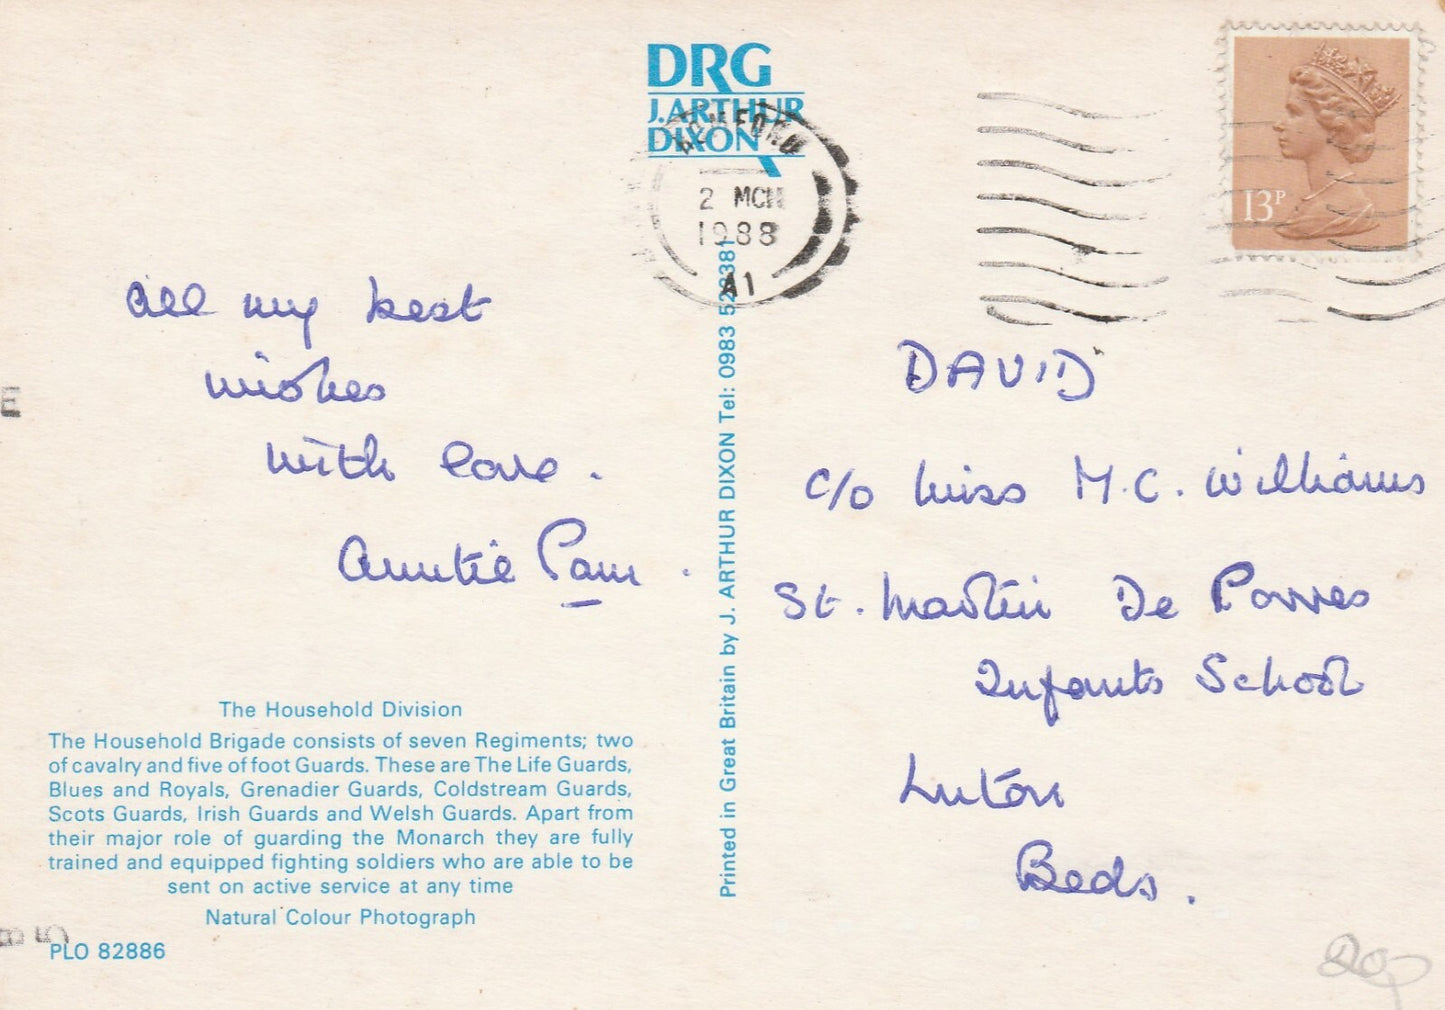 DRG
J. ARTHUR
DIXON
2 MCH
1988
A1
13P
all my best
wishes
with love.
Auntie Pam.
DAVID
c/o Miss M.C. Williams
St. Martin De Porres
Infants School
Luton
Beds.
The Household Division
The Household Brigade consists of seven Regiments; two
of cavalry and five of foot Guards. These are The Life Guards,
Blues and Royals, Grenadier Guards, Coldstream Guards,
Scots Guards, Irish Guards and Welsh Guards. Apart from
their major role of guarding the Monarch they are fully
trained and equipped fighting soldiers who are able to be
sent on active service at any time
Natural Colour Photograph
PLO 82886
Printed in Great Britain by J. ARTHUR DIXON Tel: 0983
20p